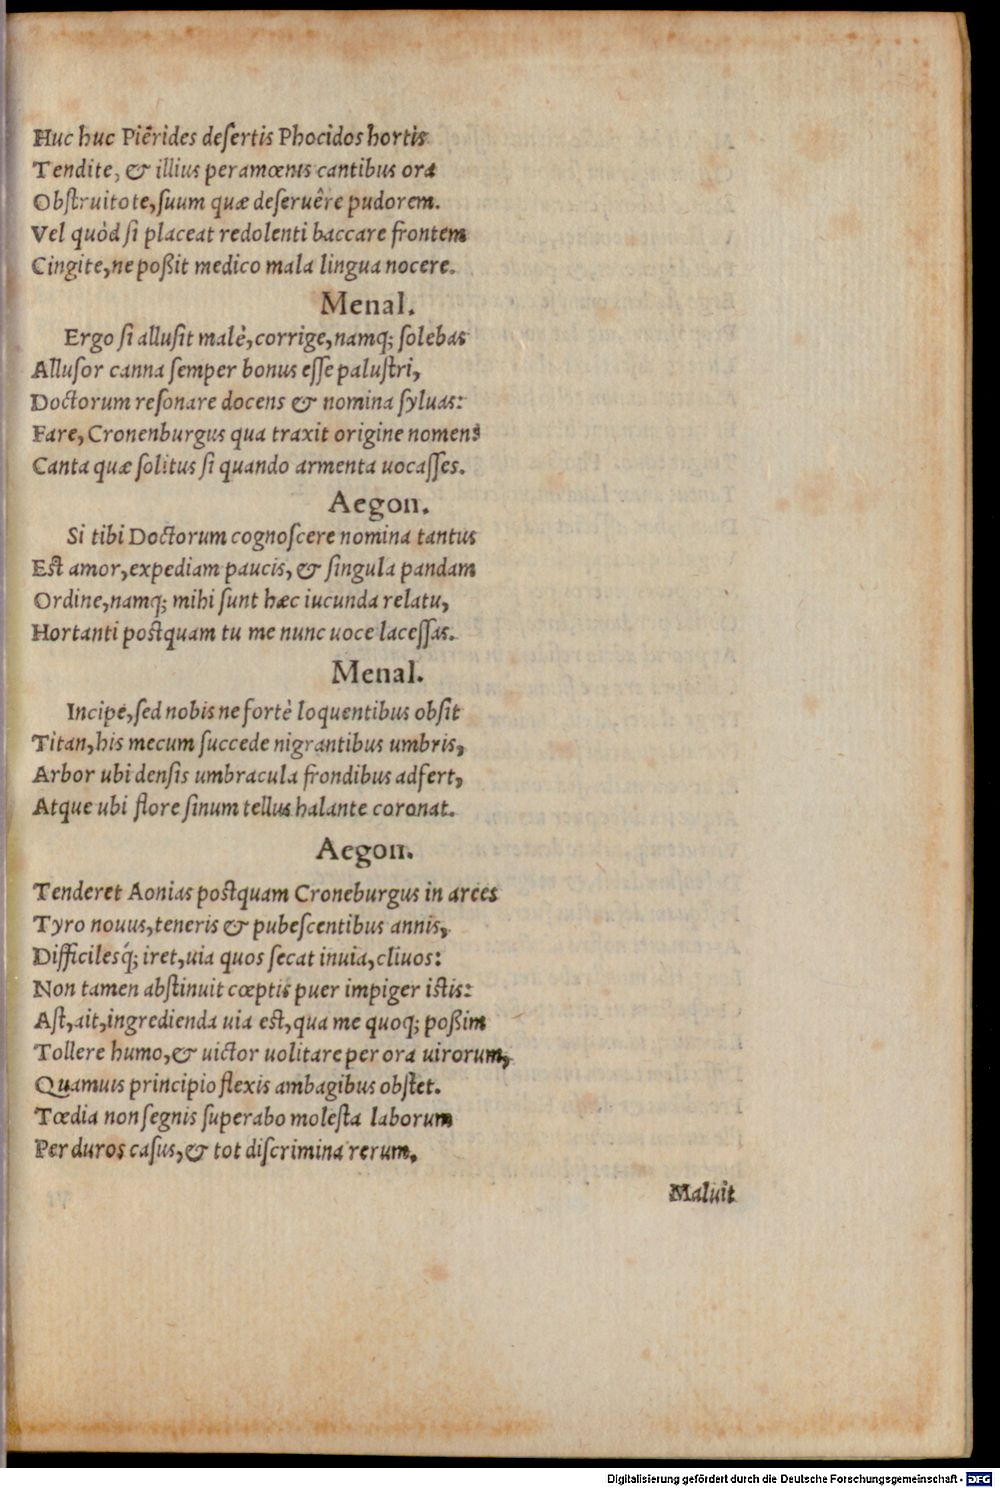 Huc huc Piërides deſertis Phocidos hortis
Tendite, & illius peramœnis cantibus ora
Obſtruitote, ſuum quæ deſeruêre pudorem.
Vel quòd ſi placeat redolenti baccare frontem
Cingite, ne poßit medico mala lingua nocere.
Menal.
Ergo ſi alluſit malè, corrige, namq; ſolebas
Alluſor canna ſemper bonus eſſe paluſtri,
Doctorum reſonare docens & nomina ſyluas:
Fare, Cronenburgus qua traxit origine nomen?
Canta quæ ſolitus ſi quando armenta uocaſſes.
Aegon.
Si tibi Doctorum cognoſcere nomina tantus
Eſt amor, expediam paucis, & ſingula pandam
Ordine, namq; mihi ſunt hæc iucunda relatu,
Hortanti poſtquam tu me nunc uoce laceſſas.
Menal.
Incipe, ſed nobis ne fortè loquentibus obſit
Titan, his mecum ſuccede nigrantibus umbris,
Arbor ubi denſis umbracula frondibus adfert,
Atque ubi flore ſinum tellus halante coronat.
Aegon.
Tenderet Aonias poſtquam Croneburgus in arces
Tyro nouus, teneris & pubeſcentibus annis,
Difficilesq́; iret, uia quos ſecat inuia, cliuos:
Non tamen abſtinuit cœptis puer impiger iſtis:
Aſt, ait, ingredienda uia eſt, qua me quoq; poßim
Tollere humo, & uictor uolitare per ora uirorum,
Quamuis principio flexis ambagibus obſtet.
Tœdia non ſegnis ſuperabo moleſta laborum
Per duros caſus, & tot diſcrimina rerum.
Maluit
Digitalisierung gefördert durch die Deutsche Forschungsgemeinschaft - DFG